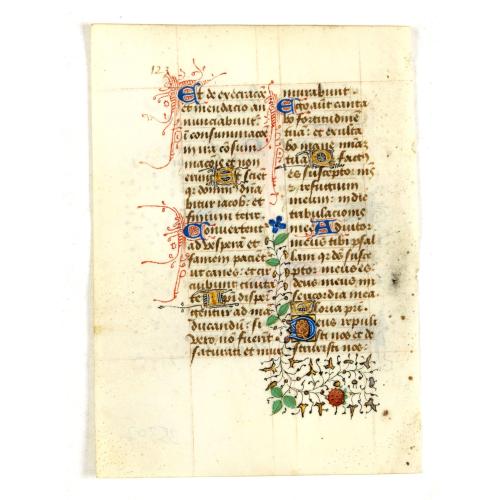 123
Et de execracōe
et mendacio an
nunciabunt̄
ī consummacōe
in ira cōsum
macōis et non
erunt Et sciēt
q: dominabitur
iacob: et
finium terre
Convertent̄
ad vesperā et
famem paciēt̄
ut canes: et cir
cuibunt civita
tē Ipi disper
gentur ad mā
ducandū: si
vero no fuerīt
saturati et mur
murabunt
Ego aut canta
bo fortitudinē
tuā: et exulta
bo mane
Quia factus
es susceptor
et refugium
meum: in die
tribulacionis
mee Adiutor
meus tibi psal
lam q: deus susce
ptor meus es
deus meus mi
sericordia mea
Gloria pri
Deus repuli
sti nos et de
struxisti nos: